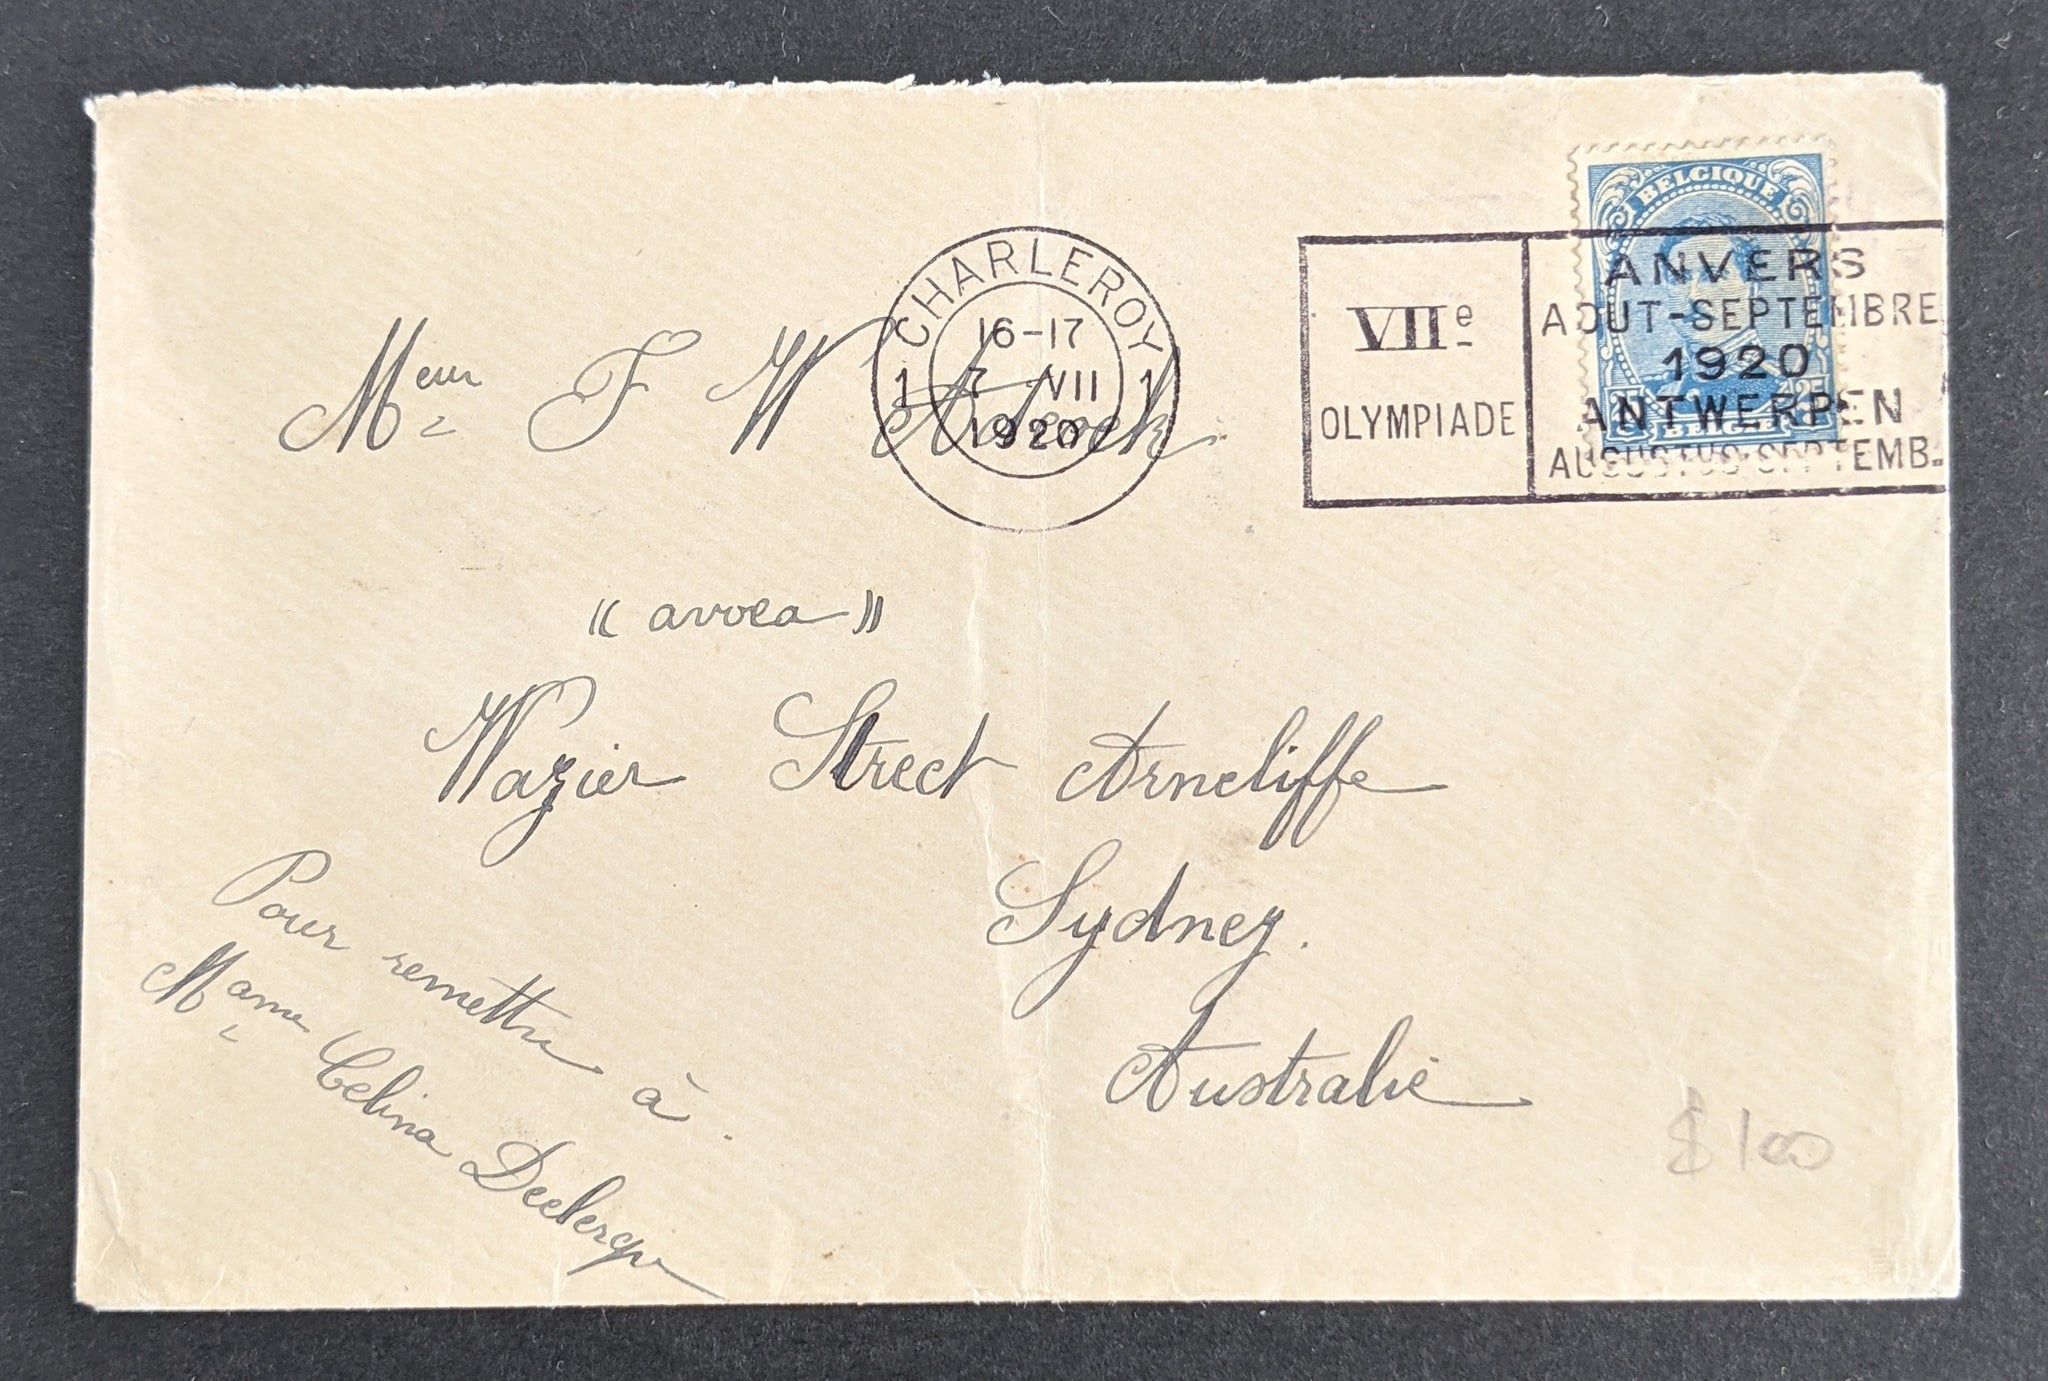 BELGIQUE
CHARLEROY
16-17
1 7 VII 1
1920
VIIe
OLYMPIADE
ANVERS
AOUT-SEPTEMBRE
1920
ANTWERPEN
AUGUSTUS-SEPTEMB.
BELGIE
Meur F W Adcock.
« avoca »
Wazier Street Arncliffe
Sydney.
Australie
Pour remettre à.
Mame Celina Declercq
$100